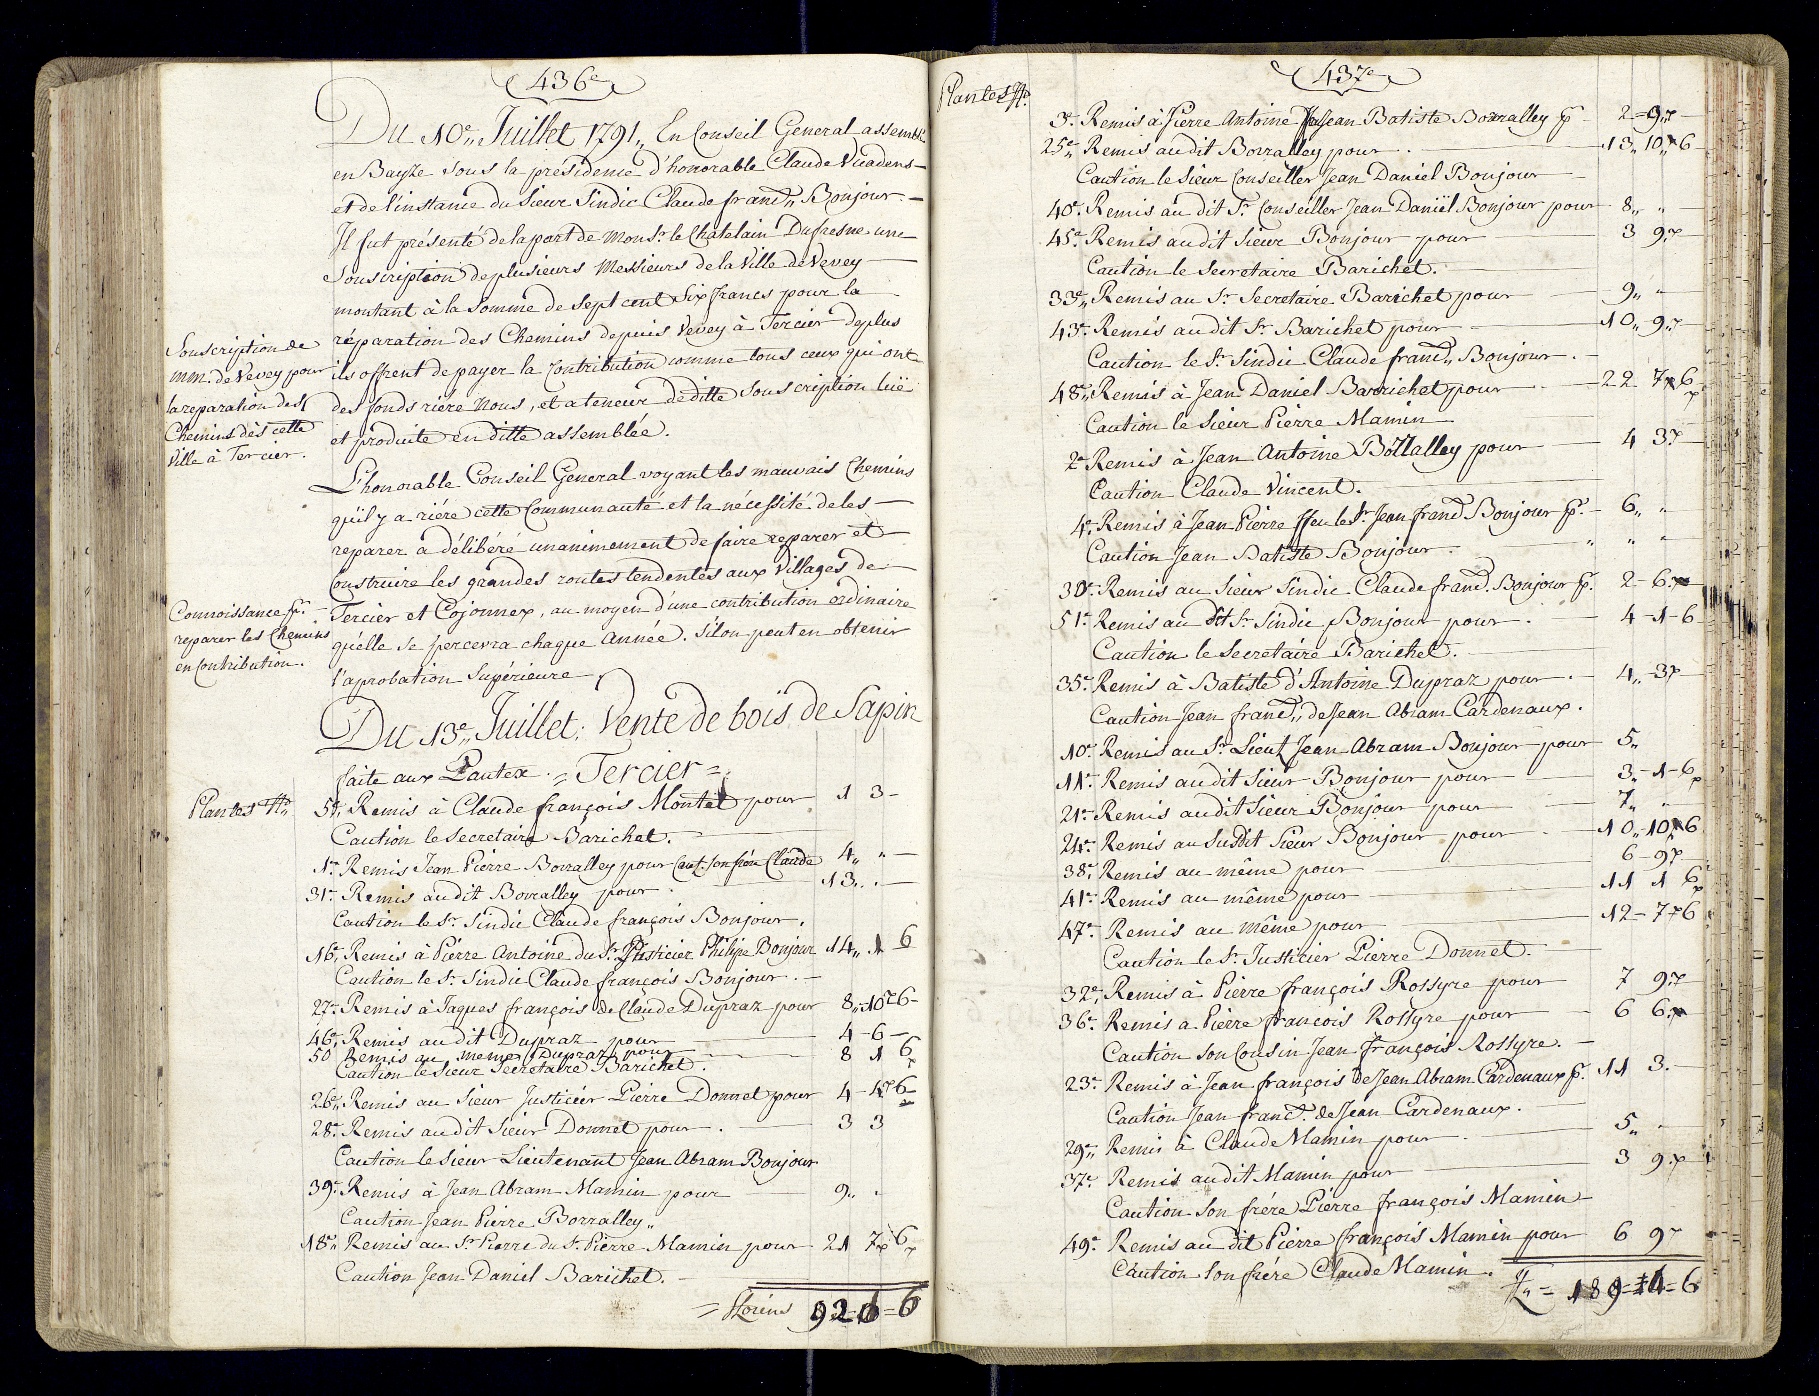 436e
Du 10e,, Juillet 1791,, En Conseil General assemblé
en Bayse sous la présidence d'honorable Claude Vuadens
et de l'instance du Sieur Sindic Claude franc,, Bonjour.
Il fut présenté de la part de Monsr. le Chatelain Dufresne une
Souscription de plusieurs Messieurs de la Ville de Vevey
montant à la Somme de Sept cent Six francs pour la
réparation des Chemins depuis Vevey à Tercier deplus
ils offrent de payer la Contribution comme tous ceux qui ont
des fonds rière Nous, et a teneur de ditte Souscription luë
et produite en ditte assemblée.
Souscription de
mm. de Vevey pour
la reparation des
Chemins dès cette
Ville à Tercier.
L'honorable Conseil General voyant les mauvais Chemins
qu'il y a riére cette Communauté et la nécessité de les
reparer a délibéré unanimement de faire reparer et
Construire les grandes routes tendentes aux Villages de
Tercier et Cojonnex, au moyen d'une contribution ordinaire
qu'elle se percevra chaque Année. Si l'on peut en obtenir
l'aprobation Supérieure
Connoissance pr.
reparer les Chemins
en Contribution.
Du 13e,, Juillet; Vente de bois de Sapin
faite aux Pautex = Tercier =
Plantes No.
5e,, Remis à Claude françois Montet pour 1 3
Caution le Secretaire Barichet.
1e. Remis Jean Pierre Borralley pour Caut. son frère Claude 4,, ,,
31e. Remis audit Borralley pour 13.. .
Caution le Sr. Sindic Claude françois Bonjour.
16e. Remis à Pierre Antoine du Sr. Justicier Philipe Bonjour 14,, 1 6
Caution le Sr. Sindic Claude françois Bonjour.
27e. Remis à Jaques françois de Claude Dupraz pour 8,,-10-6
46e. Remis au dit Dupraz pour 4-6
50 Remis au même Dupraz pour 8 1 6
Caution le Sieur Secretaire Barichet.
26e,, Remis au Sieur Justicier Pierre Donnet pour 4-4-6
28e. Remis audit Sieur Donnet pour 3 3
Caution le Sieur Lieutenant Jean Abram Bonjour
39e. Remis à Jean Abram Mamin pour 9,, .
Caution Jean Pierre Borralley,,
18e,, Remis au Sr. Pierre du St. Pierre Mamin pour 21 7 6
Caution Jean Daniel Barichet.
= florins 92=6=6
437e
Plantes No.
3e. Remis à Pierre Antoine ffeu Jean Batiste Borralley pr. 2=9
25e,, Remis audit Borralley pour 13,, 10 6
Caution le Sieur Conseiller Jean Daniel Bonjour
40e. Remis au dit Sr. Conseiller Jean Daniël Bonjour pour 8,, ,,
45e. Remis au dit Sieur Bonjour pour 3 9
Caution le Secretaire Barichet.
33e,, Remis au Sr. Secretaire Barichet pour 9,, ,,
43e. Remis au dit Sr. Barichet pour 10,, 9
Caution le Sr. Sindic Claude franc,, Bonjour.
48e,, Remis à Jean Daniel Barrichet pour 22 7 6
Caution le Sieur Pierre Mamin
2e Remis à Jean Antoine Bottalley pour 4 3
Caution Claude Vincent.
4e. Remis à Jean Pierre ffeu le Sr. Jean franc. Bonjour pr. 6,, ,,
Caution Jean Batiste Bonjour. ,, ,, ,,
30e. Remis au Sieur Sindic Claude franc. Bonjour pr. 2-6
51e. Remis au dt Sr. Sindic Bonjour pour 4-1-6
Caution le Secretaire Barichet.
35e. Remis à Batiste d'Antoine Dupraz pour 4,,-3
Caution Jean franc,, de Jean Abram Cardenaux.
10e. Remis au Sr. Lieut. Jean Abram Bonjour pour 5,,
11e. Remis au dit Sieur Bonjour pour 3.-1-6
21e. Remis au dit Sieur Bonjour pour 7,, ,,
24e. Remis au Susdit Sieur Bonjour pour 10,,-10-6
38e. Remis au même pour 6-9
41e. Remis au même pour 11 1 6
47e. Remis au même pour 12-7-6
Caution le Sr. Justicier Pierre Donnet.
32e,, Remis à Pierre françois Rossyre pour 7 9
36e. Remis à Pierre françois Rossyre pour 6 6
Caution son Cousin Jean françois Rossyre.
23e. Remis à Jean françois de Jean Abram Cardenaux pr. 11 3.
Caution Jean franc. de Jean Cardenaux.
29e,, Remis à Claude Mamin pour 5,,
37e. Remis au dit Mamin pour 3 9
Caution Son frére Pierre françois Mamin
49e. Remis au dit Pierre françois Mamin pour 6 9
Caution Son frére Claude Mamin.
fl,, = 189=11=6